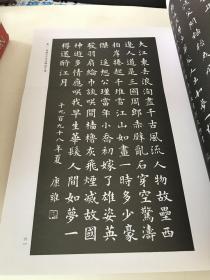 大江東去浪淘盡千古風流人物故壘西
邊人道是三國周郎赤壁亂石穿空驚濤
拍岸捲起千堆雪江山如畫一時多少豪
傑遙想公瑾當年小喬初嫁了雄姿英
發羽扇綸巾談笑間檣櫓灰飛煙滅故國
神遊多情應笑我早生華髮人間如夢一
樽還酹江月
九百九十八年夏 康